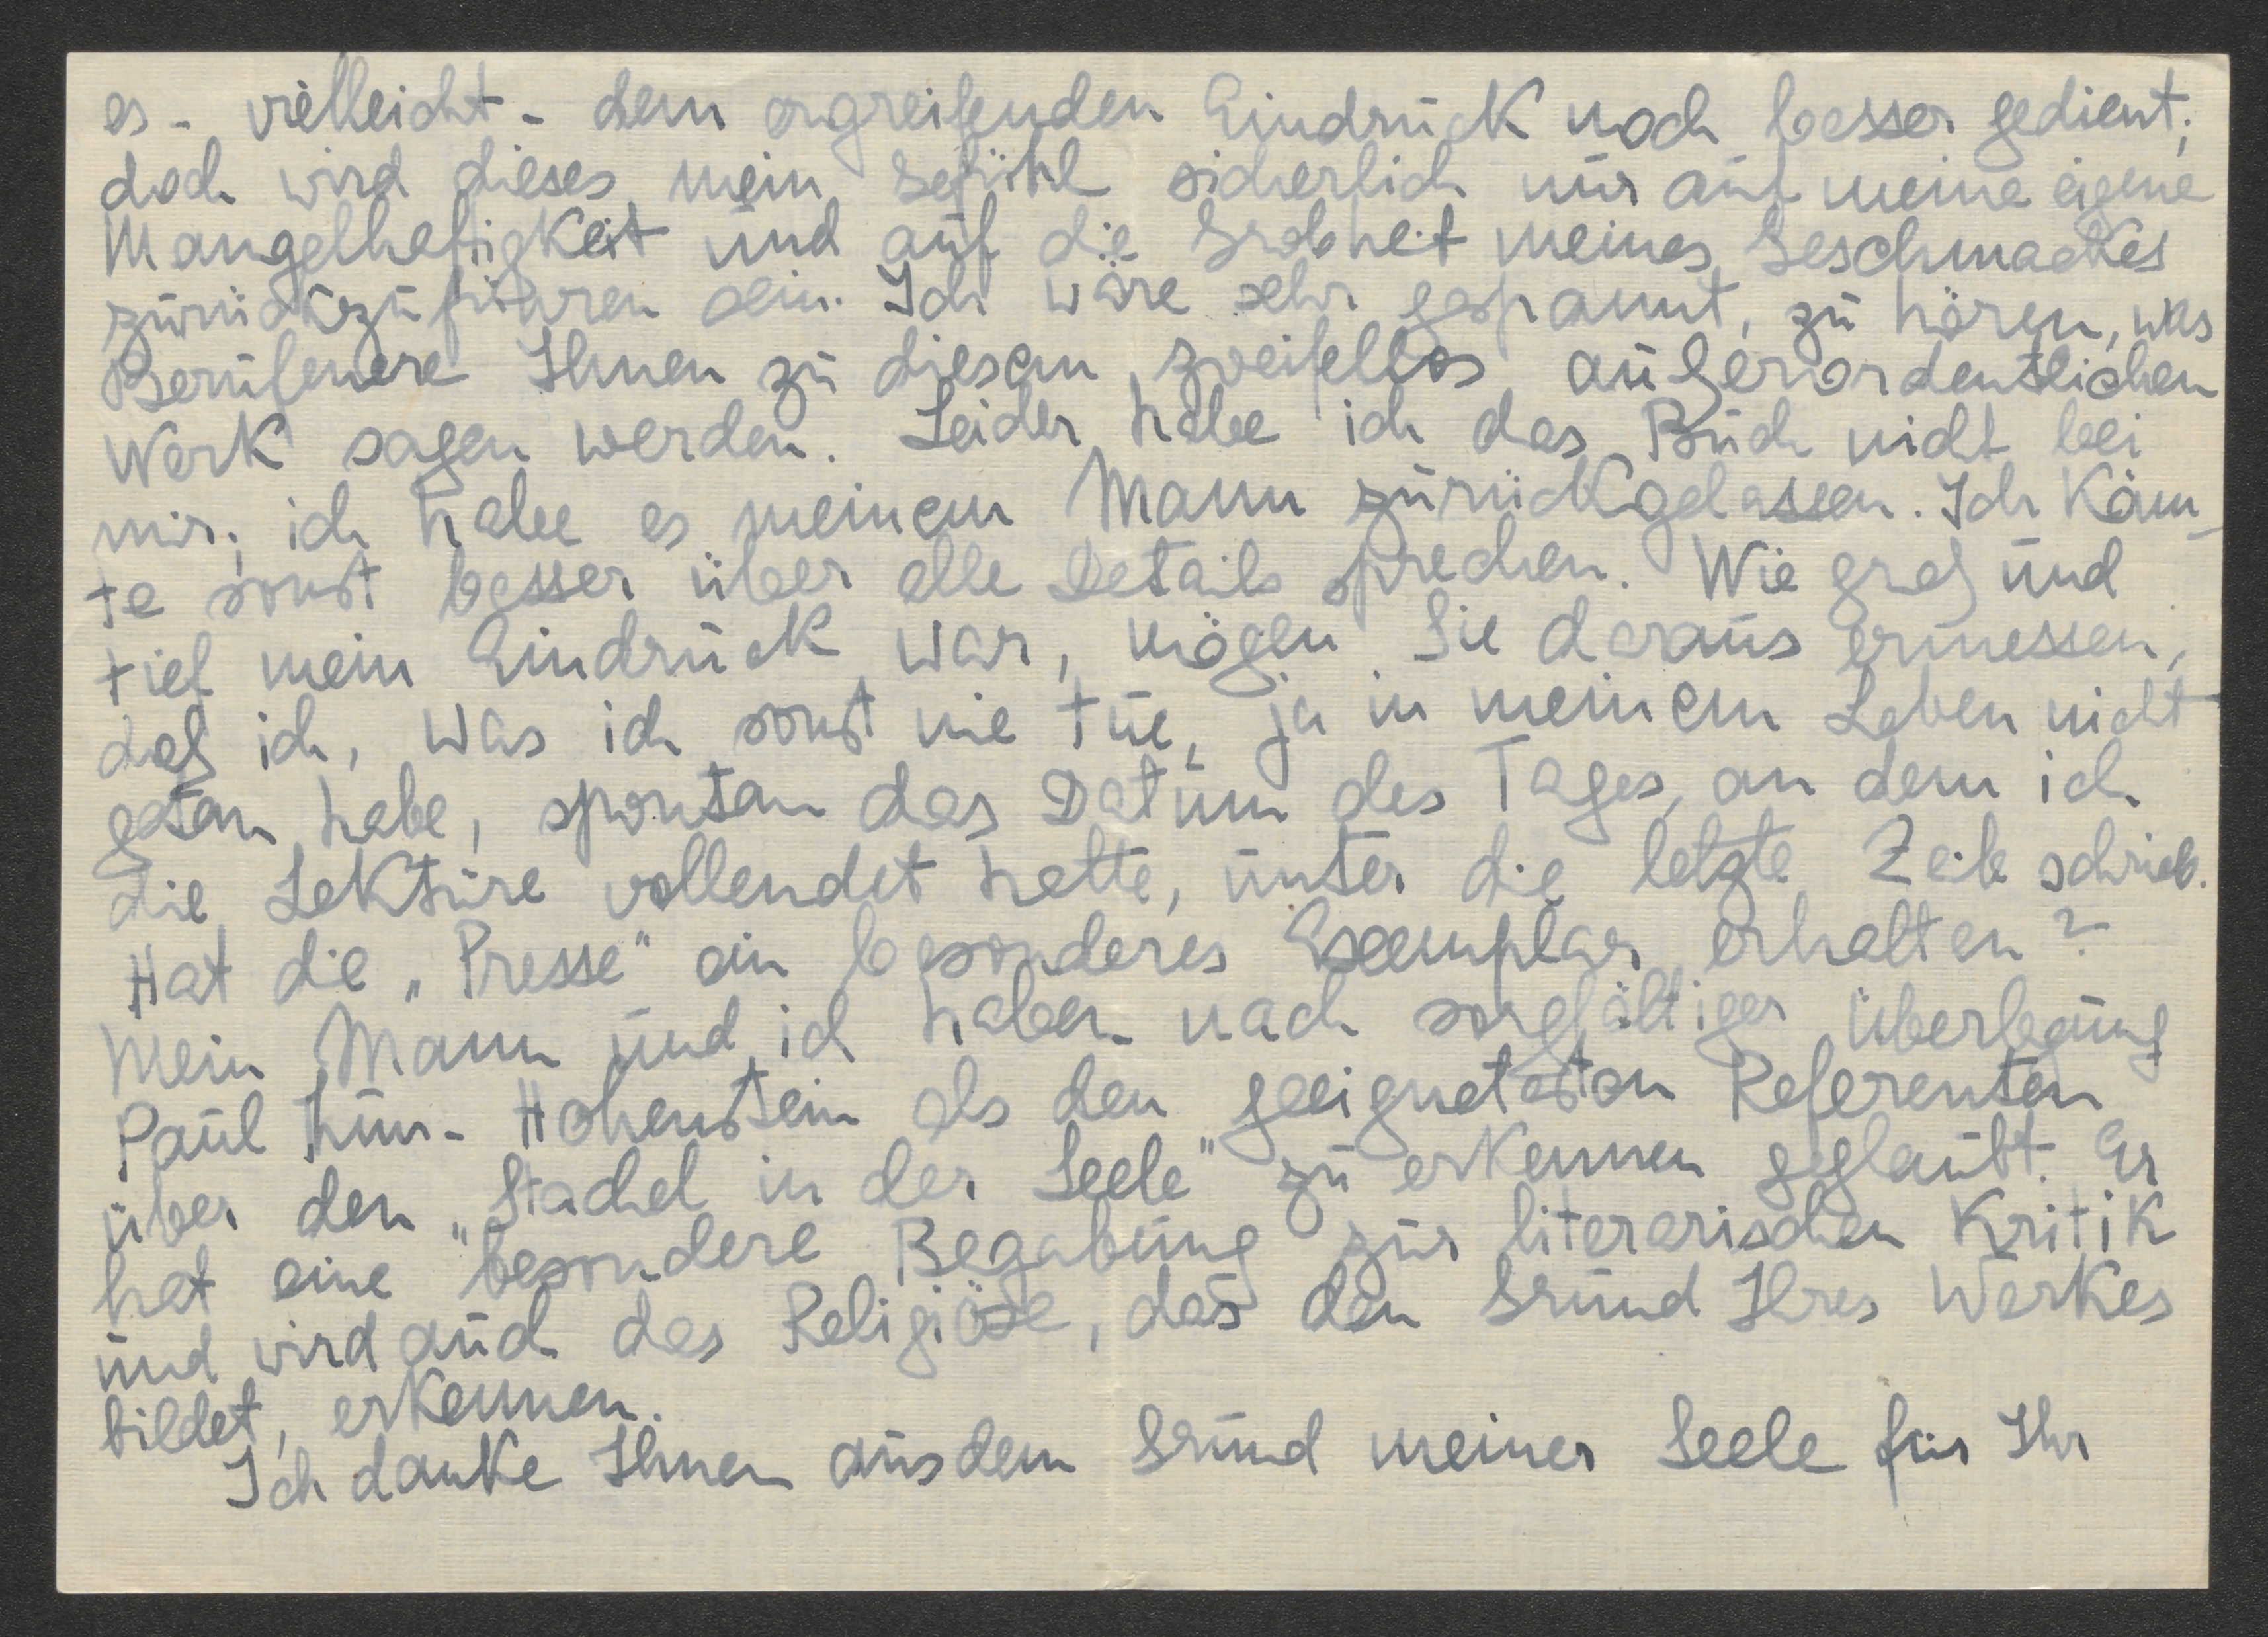 es - vielleicht - dem ergreifenden Eindruck noch besser gedient;
doch wird dieses mein Gefühl sicherlich nur auf meine eigene
Mangelhaftigkeit und auf die Grobheit meines Geschmackes
zurückzuführen sein. Ich wäre sehr gespannt, zu hören, was
Berufenere Ihnen zu diesem zweifellos außerordentlichen
Werk sagen werden. Leider habe ich das Buch nicht bei
mir; ich habe es meinem Mann zurückgelassen. Ich könn-
te sonst besser über alle Details sprechen. Wie groß und
tief mein Eindruck war, mögen Sie daraus ermessen,
daß ich, was ich sonst nie tue, ja in meinem Leben nicht
getan habe, spontan das Datum des Tages, an dem ich
die Lektüre vollendet hatte, unter die letzte Zeile schrieb.
Hat die „Presse" ein besonderes Exemplar erhalten?
Mein Mann und ich haben nach sorgfältiger Überlegung
Paul Thun-Hohenstein als den geeignetesten Referenten
über den „Stachel in der Seele" zu erkennen geglaubt. Er
hat eine besondere Begabung zur literarischen Kritik
und wird auch das Religiöse, das den Grund Ihres Werkes
bildet, erkennen.
Ich danke Ihnen aus dem Grund meiner Seele für Ihr